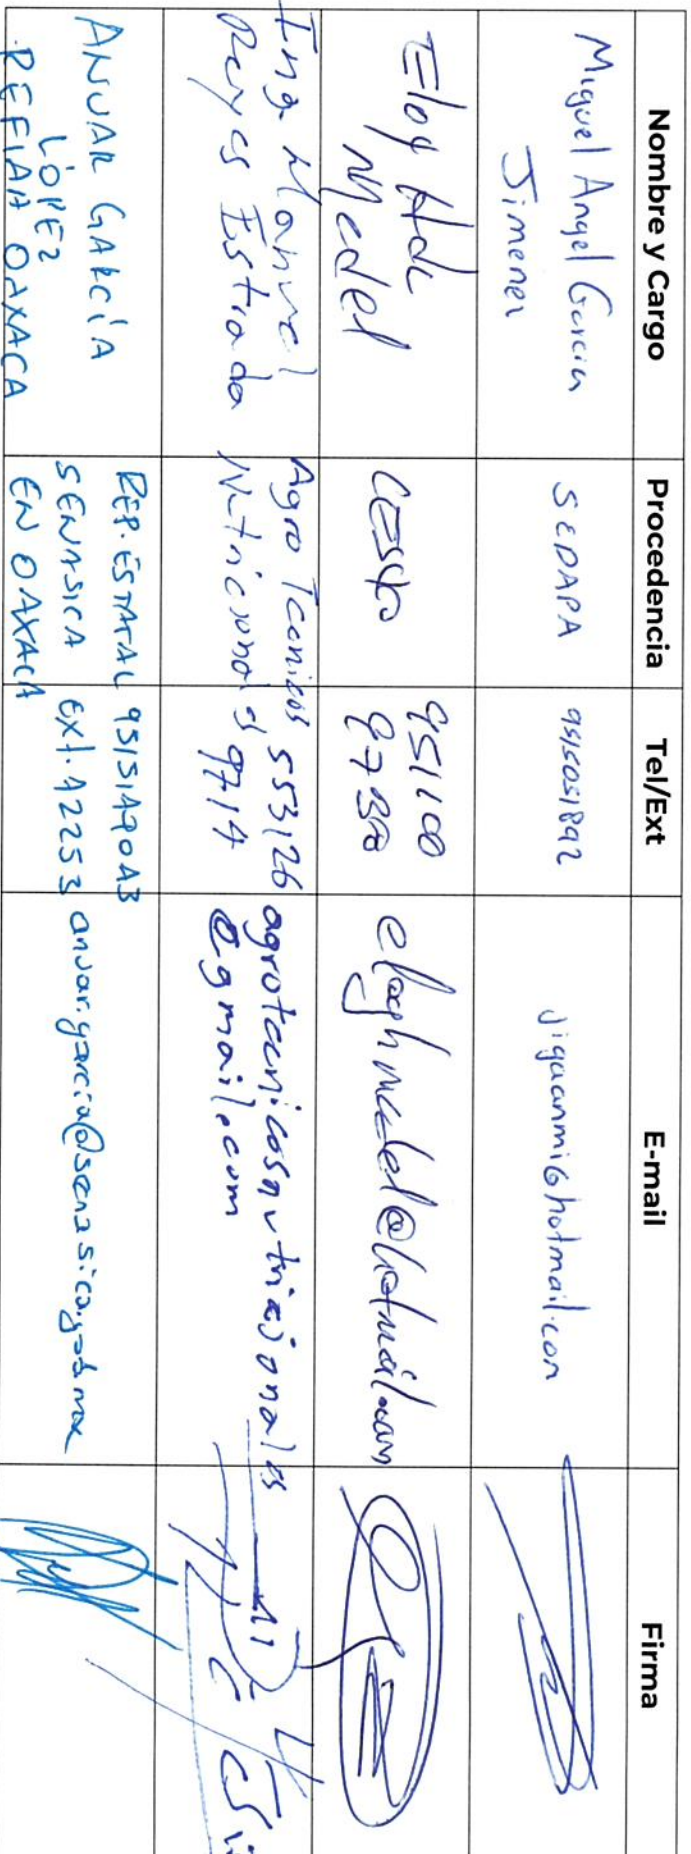 Nombre y Cargo Procedencia Tel/Ext E-mail Firma
Miguel Angel Garcia
Jimenez
SEDAPA
9515051892
jiguanmi6hotmail.com
Eloy Hdz
Medel
951100
9730
eloyhmedel@hotmail.com
Ing Manuel
Reyes Estrada
Agro Tecnicos
Nutricionales
553126
9714
agrotecnicosnutricionales
@gmail.com
ANUAR GARCÍA
LÓPEZ
OAXACA
REP. ESTATAL
SENASICA
EN OAXACA
Ext. 42253
anuar.garcia@senasica.gob.mx